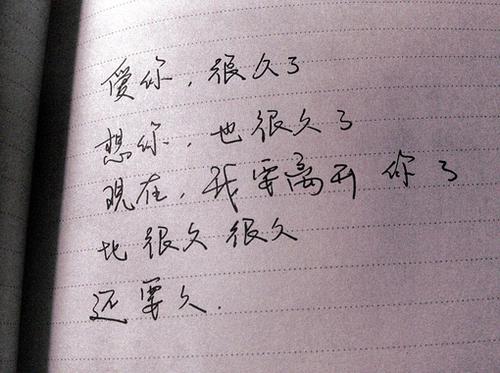 愛你，很久了
想你，也很久了
現在，我要离开 你了
比 很久 很久
还要久.